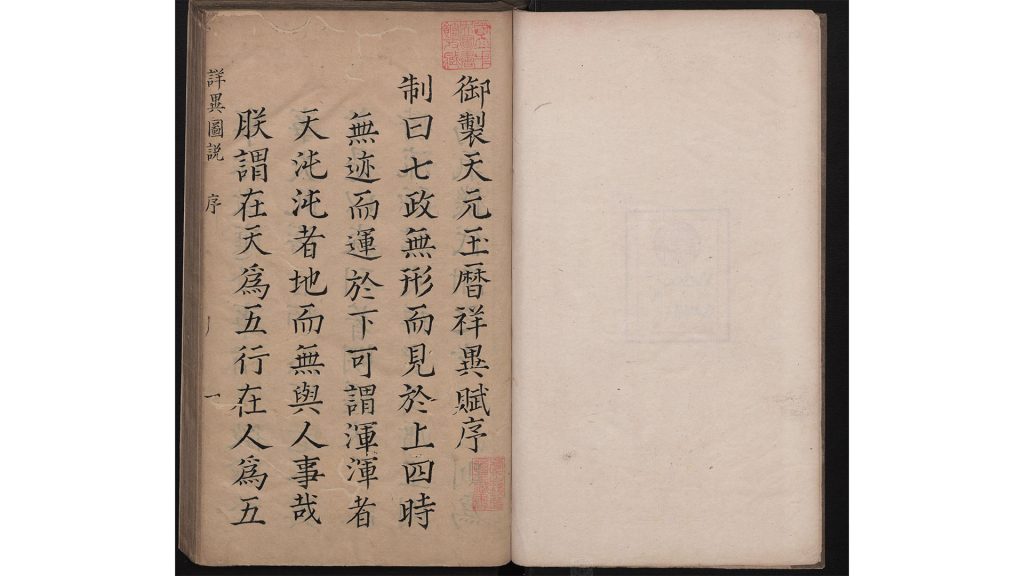 御製天元玉曆祥異賦序
制曰七政無形而見於上四時
無迹而運於下可謂渾渾者
天沌沌者地而無與人事哉
朕謂在天為五行在人為五
詳異圖説
序
一